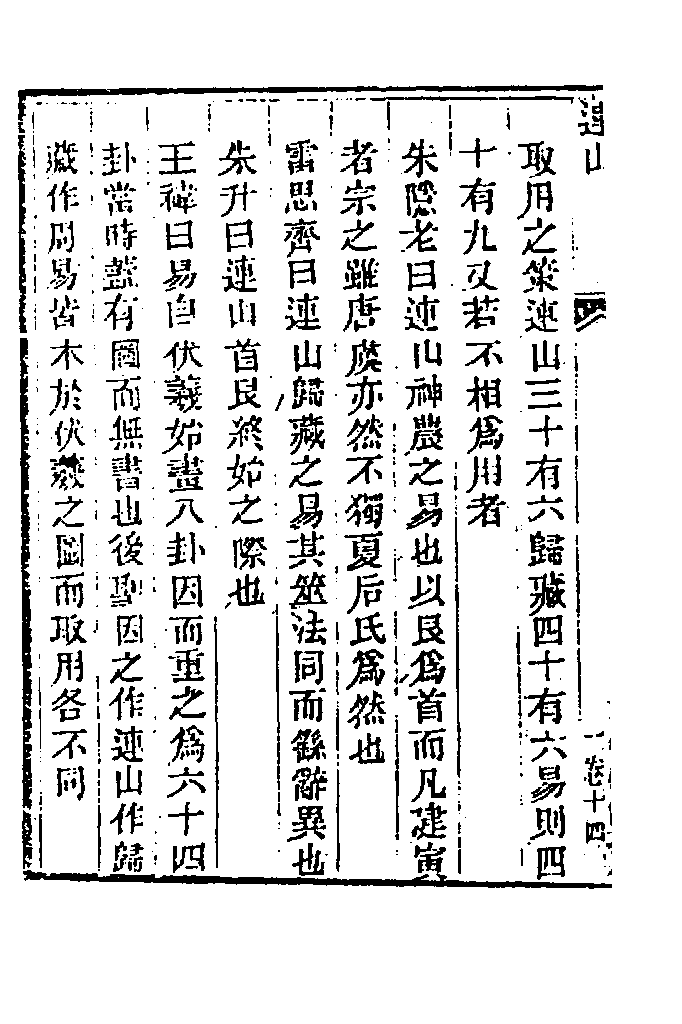 連山
卷十四
取用之策連山三十有六歸藏四十有六易則四
十有九又若不相爲用者
朱隱老曰連山神農之易也以艮爲首而凡建寅
者宗之雖唐虞亦然不獨夏后氏爲然也
雷思齊曰連山歸藏之易其筮法同而繇辭異也
朱升曰連山首艮終始之際也
王褘曰易自伏羲始畫八卦因而重之爲六十四
卦當時葢有圖而無書也後聖因之作連山作歸
藏作周易皆本於伏羲之圖而取用各不同